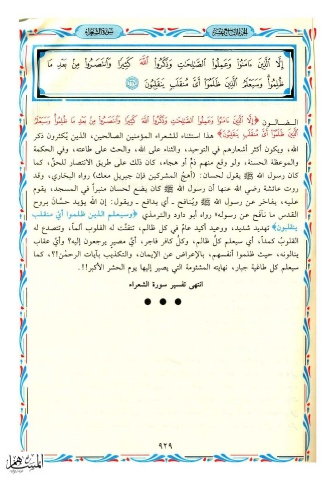 سورة الشعراء
إِلَّا الَّذِينَ ءَامَنُوا وَعَمِلُوا الصَّالِحَاتِ وَذَكَرُوا اللَّهَ كَثِيرًا وَانتَصَرُوا مِنْ بَعْدِ مَا
ظُلِمُوا وَسَيَعْلَمُ الَّذِينَ ظَلَمُوا أَيَّ مُنقَلَبٍ يَنقَلِبُونَ
﴿إِلَّا الَّذِينَ ءَامَنُوا وَعَمِلُوا الصَّالِحَاتِ وَذَكَرُوا اللَّهَ كَثِيرًا وَانتَصَرُوا مِنْ بَعْدِ مَا ظُلِمُوا وَسَيَعْلَمُ
الَّذِينَ ظَلَمُوا أَيَّ مُنقَلَبٍ يَنقَلِبُونَ﴾ هذا استثناء للشعراء المؤمنين الصالحين، الذين يُكثرون ذكر
الله، ويكون أكثر أشعارهم في التوحيد، والثناء على الله، والحث على طاعته، وفي الحكمة
والموعظة الحسنة، ولو وقع منهم ذمٌ أو هجاء، كان ذلك على طريق الانتصار للحقّ، كما
كان رسول الله ﷺ يقول لحسان: (أهجُ المشركين فإن جبريل معك) رواه البخاري، وقد
روت عائشة رضي الله عنها أن رسول الله ﷺ كان يضع لحسان منبراً في المسجد، يقوم
عليه، يفاخر عن رسول الله ﷺ ويُنافح ـ أي يدافع ـ ويقول: إن الله يؤيد حسَّان بروح
القدس ما نافح عن رسوله» رواه أبو داود والترمذي ﴿وسيعلم الذين ظلموا أي منقلب
ينقلبون﴾ تهديد شديد، ووعيد أكيد عامٌ في كل ظالم، تتفتَّت له القلوب ألماً، وتتصدع له
القلوبُ كمداً، أي سيعلم كلُّ ظالم، وكلُّ كافر فاجر، أيَّ مصيرٍ يرجعون إليه؟ وأيَّ عقاب
ينالونه، حيث ظلموا أنفسهم، بالإعراض عن الإيمان، والتكذيب بآيات الرحمن!؟، كما
سيعلم كل طاغية جبار، نهايته المشئومة التي يصير إليها يوم الحشر الأكبر!!.
انتهى تفسير سورة الشعراء
٩٢٩